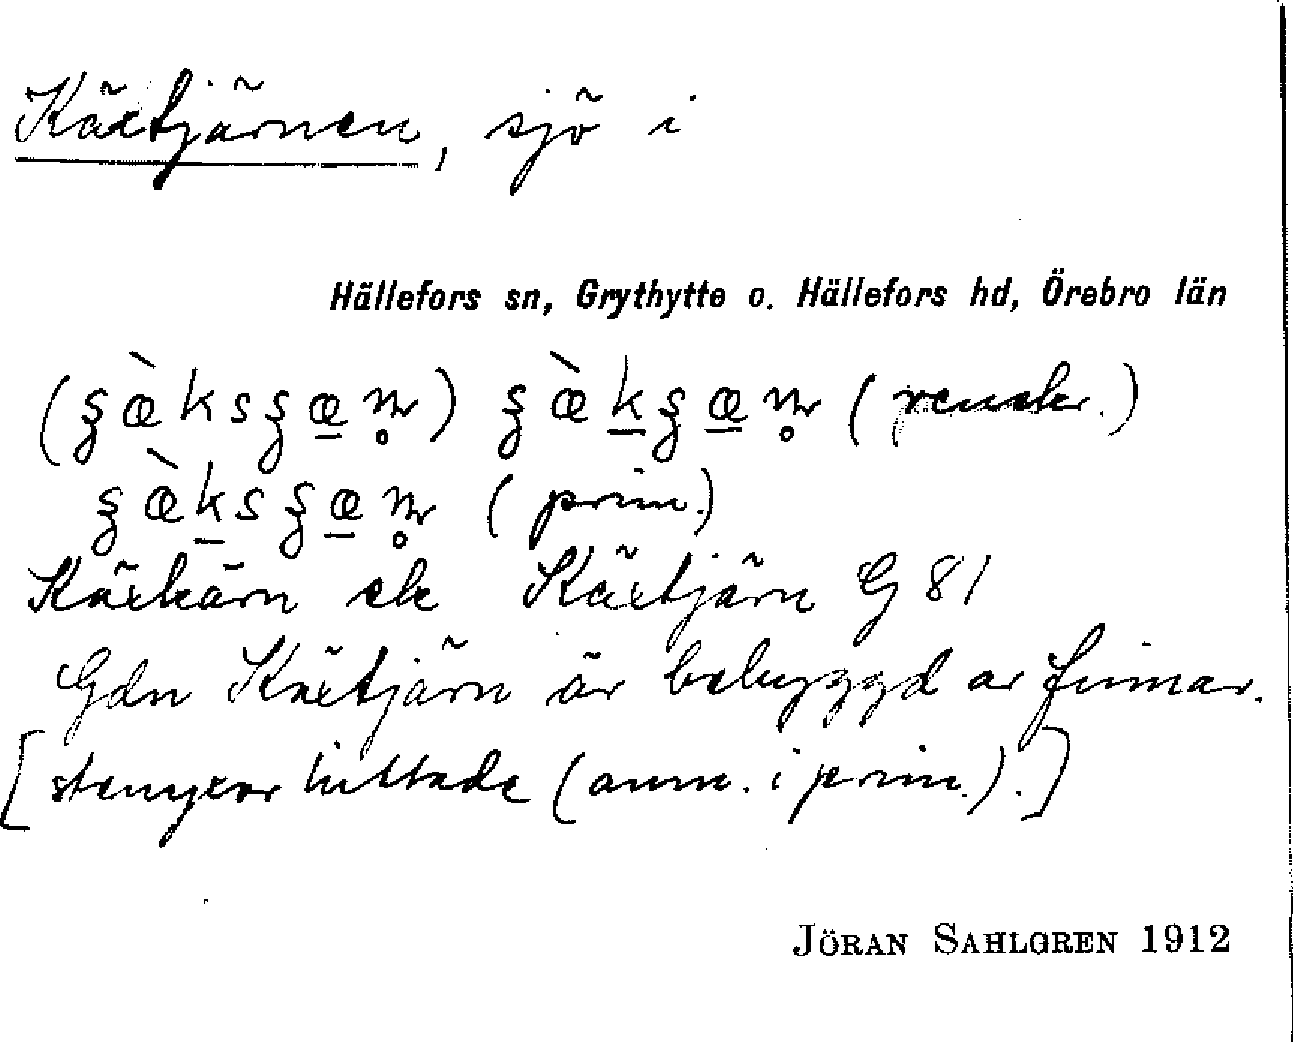 Käxtjärnen, sjö i
Hällefors sn, Grythytte o. Hällefors hd, Örebro län
(renskr.)
(prim.)
Käxkärn ek Käxtjärn G 81
Gdn Käxtjärn är bebyggd av finnar.
[stenyxor hittade (anm. i prim.).]
JÖRAN SAHLGREN 1912